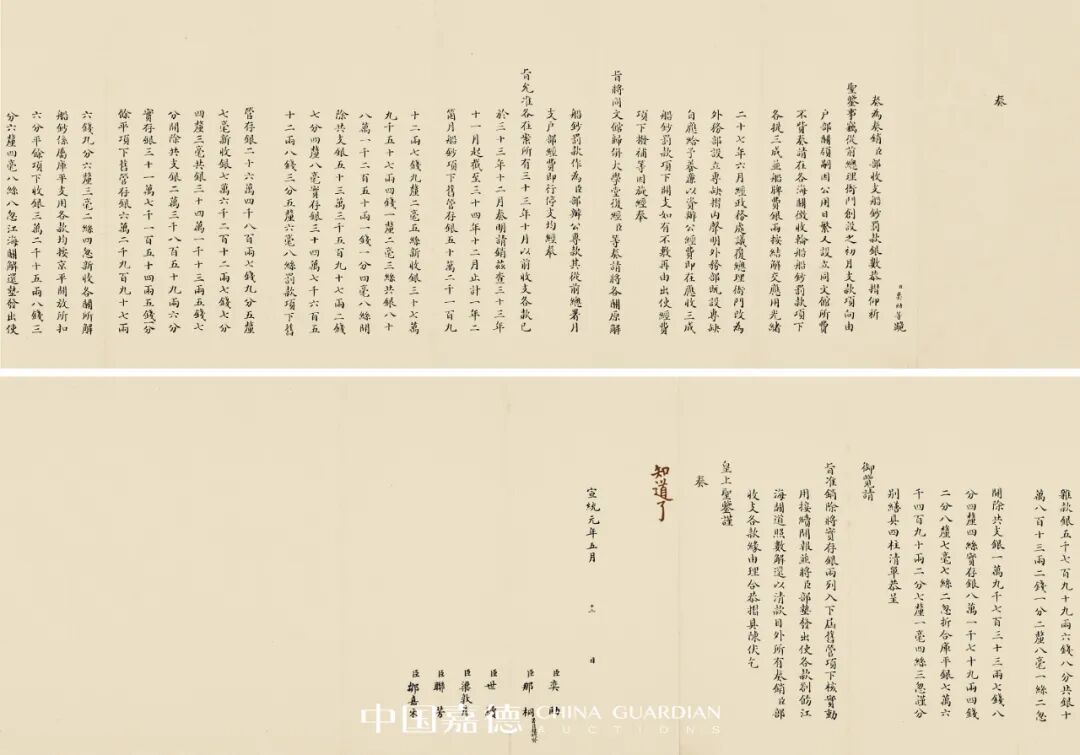 奏
臣奕劻等跪
奏為奏銷臣部收支船鈔罰款銀數恭摺仰祈
聖鑒事竊從前總理衙門創設之初月支款項向由
户部關領嗣因公用日繁又設立同文館所費
不貲奏請在各海關徵收輪船船鈔罰款項下
各提三成並船牌費銀兩按結解交應用光緒
二十七年六月經政務處議覆總理衙門改為
外務部設立專缺摺內聲明外務部既設專缺
自應給予養廉以資辦公經費即在應收三成
船鈔罰款項下開支如有不敷再由出使經費
項下撥補等因旋經奏
旨將同文館歸併大學堂復經臣等奏請將各關原解
船鈔罰款作為臣部辦公專款其從前總署月
支户部經費即行停支均經奏
旨允准各在案所有三十三年十月以前收支各款已
於三十三年十二月奏明請銷茲查三十三年
十一月起截至三十四年十二月止計一年二
箇月船鈔項下舊管存銀五十萬二千一百九
十二兩七錢九釐二毫五絲新收銀三十七萬
九千五十七兩四錢一釐二毫三絲共銀八十
八萬一千二百五十兩一錢一分四毫八絲開
除共支銀五十三萬三千五百九十七兩二錢
七分四釐八毫實存銀三十四萬七千六百五
十二兩八錢三分五釐六毫八絲罰款項下舊
管存銀二十六萬四千八百兩七錢九分五釐
七毫新收銀七萬六千二百十二兩七錢七分
四釐三毫共銀三十四萬一千十三兩五錢七
分開除共支銀二萬三千八百五十九兩六分
實存銀三十一萬七千一百五十四兩五錢一分
餘平項下舊管存銀六萬二千九百九十七兩
六錢九分六釐三毫二絲四忽新收各關所解
船鈔係屬庫平支用各款均按京平開放所扣
六分平餘項下收銀三萬二千十五兩八錢三
分六釐四毫八絲八忽江海關解還墊發出使
雜款銀五千七百九十九兩六錢八分共銀十
萬八百十三兩二錢一分二釐八毫一絲二忽
開除共支銀一萬九千七百三十三兩七錢八
分四釐四絲實存銀八萬一千七十九兩四錢
二分八釐七毫七絲二忽折合庫平銀七萬六
千四百九十兩二分七釐一毫四絲三忽謹分
別繕具四柱清單恭呈
御覽請
旨准銷除將實存銀兩列入下屆舊管項下核實動
用接續開報並將臣部墊發出使各款別飭江
海關道照數解還以清款目外所有奏銷臣部
收支各款緣由理合恭摺具陳伏乞
皇上聖鑒謹
奏
知道了
宣統元年五月 十一 日
臣奕劻
臣那桐
臣世續
臣梁敦彥
臣聯芳
臣鄒嘉來
中国嘉德 CHINA GUARDIAN
AUCTIONS